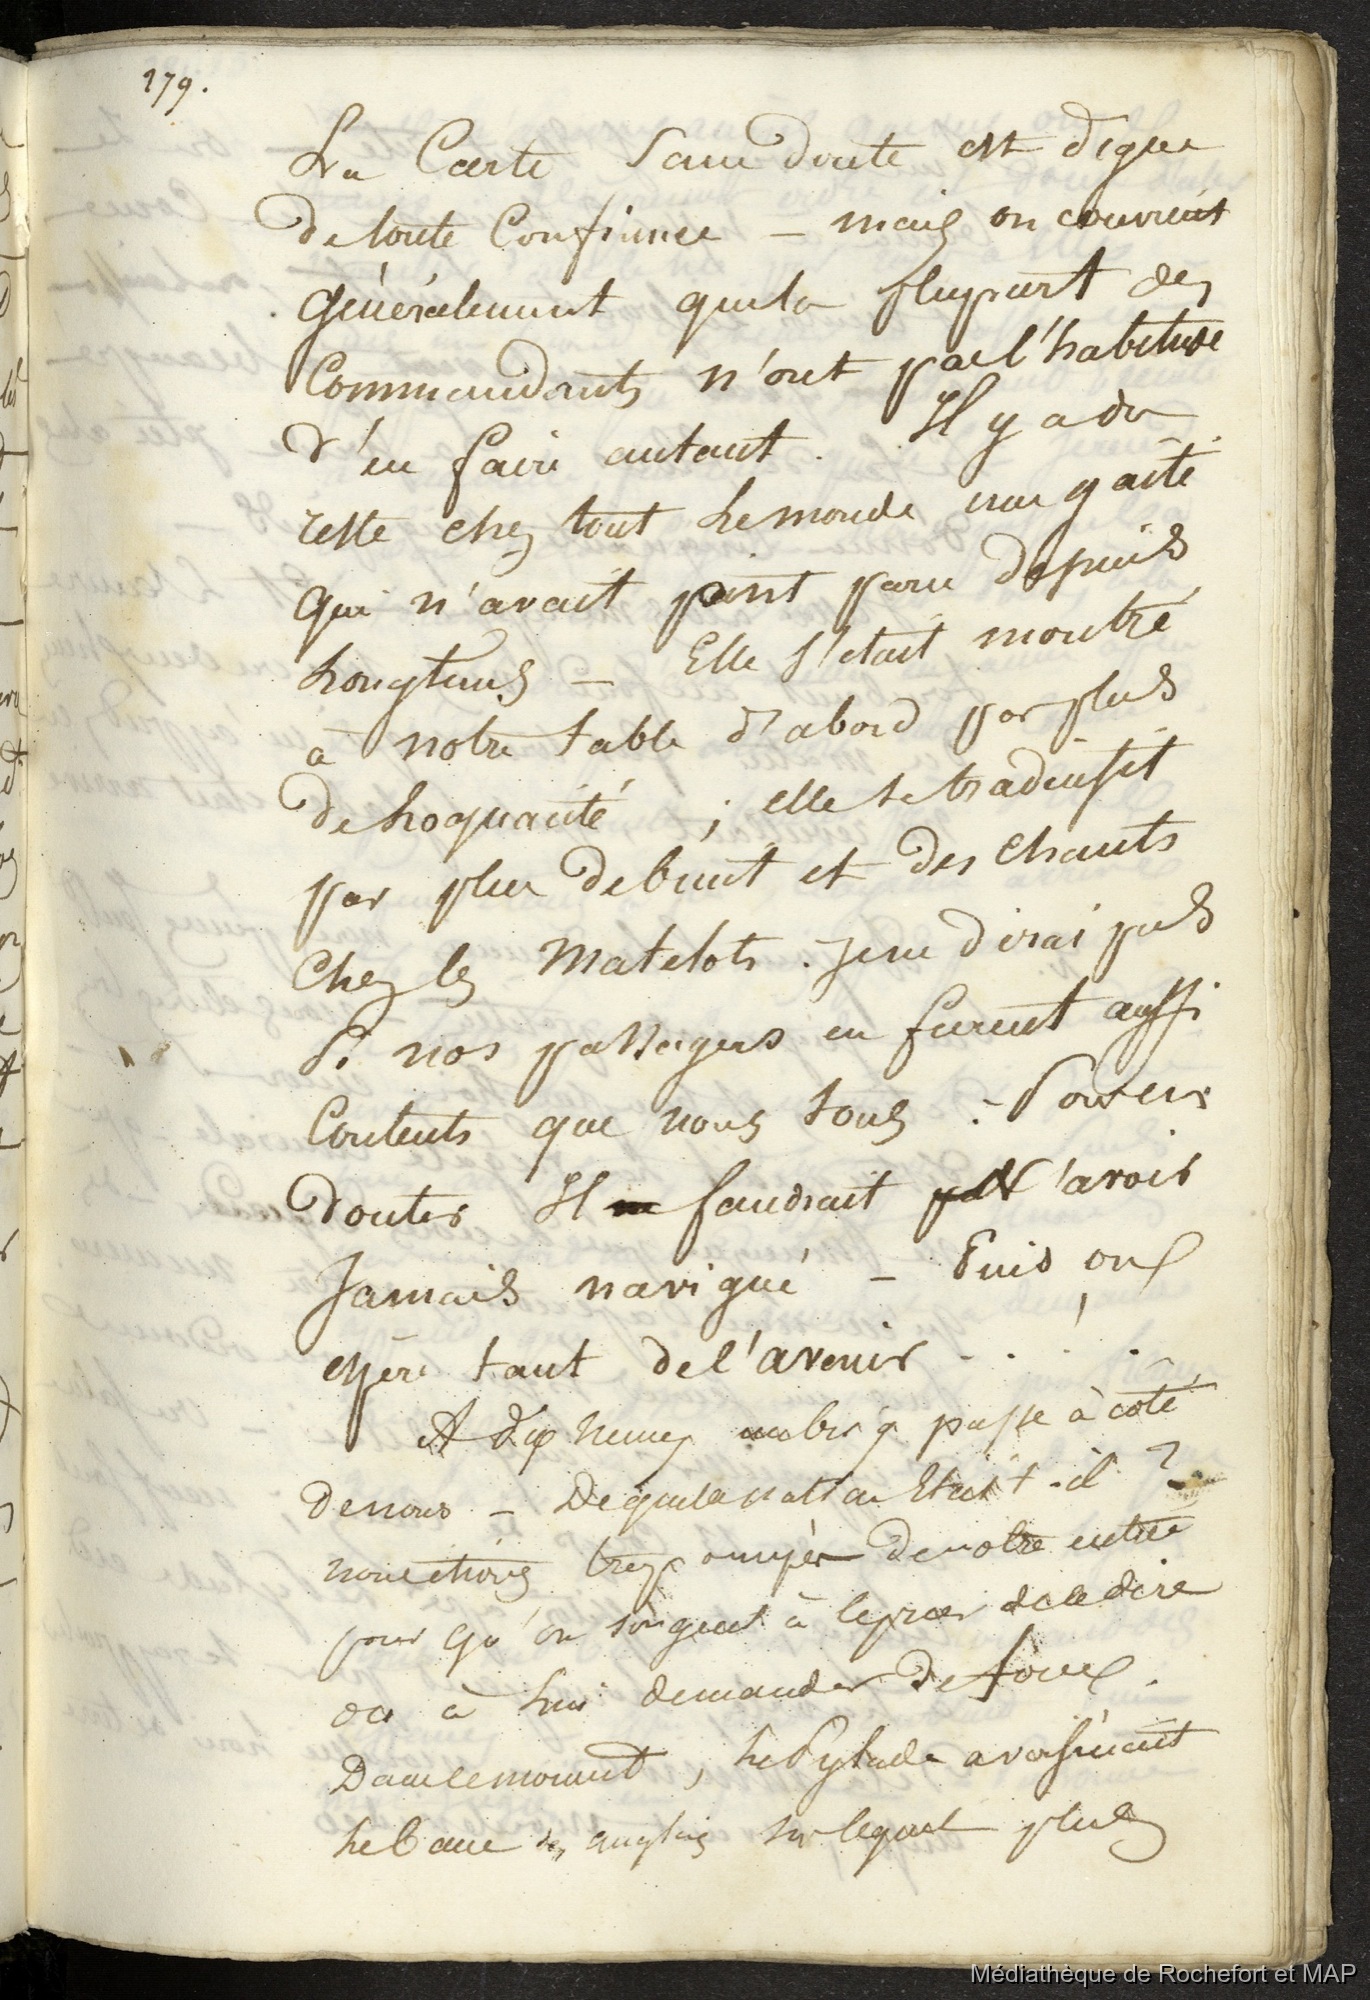 179.
La Carte Sans doute est digne
de toute Confiance - mais on convient
généralement que la plupart des
Commandants n'ont pas l'habitude
d'en faire autant. Il y a du
reste chez tout le monde une gaité
qui n'avait point paru depuis
longtems - Elle s'etait montré
à notre table d'abord par plus
de loquacité ; elle se traduisit
par plus de bruit et des chants
Chez les Matelots. Je ne dirai pas
Si nos passagers en furent aussi
Contents que nous tous : Pour en
douter Il faudrait N'avoir
Jamais navigué - Puis, on
espère tant de l'avenir . . . .
A dix heures un brig passe à coté
de nous - De quelle nation Etait-il ?
nous etions trop occupés de notre entrée
pour qu'on songeat à le prier de le dire
ou à lui demander
Dans ce moment, le Pylade avoisinant
le banc des anglais sur lequel plus
Médiathèque de Rochefort et MAP